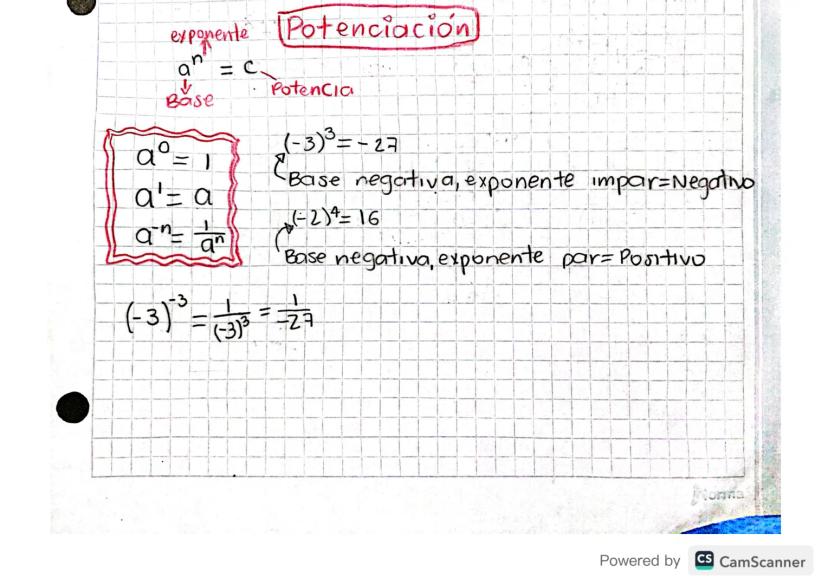 Potenciación
exponente
aⁿ = c
Base
Potencia
a⁰ = 1
a¹ = a
a⁻ⁿ = 1/aⁿ
(-3)³ = -27
Base negativa, exponente impar = Negativo
(-2)⁴ = 16
Base negativa, exponente par = Positivo
(-3)⁻³ = 1/(-3)³ = 1/-27
Norma
Powered by CS CamScanner